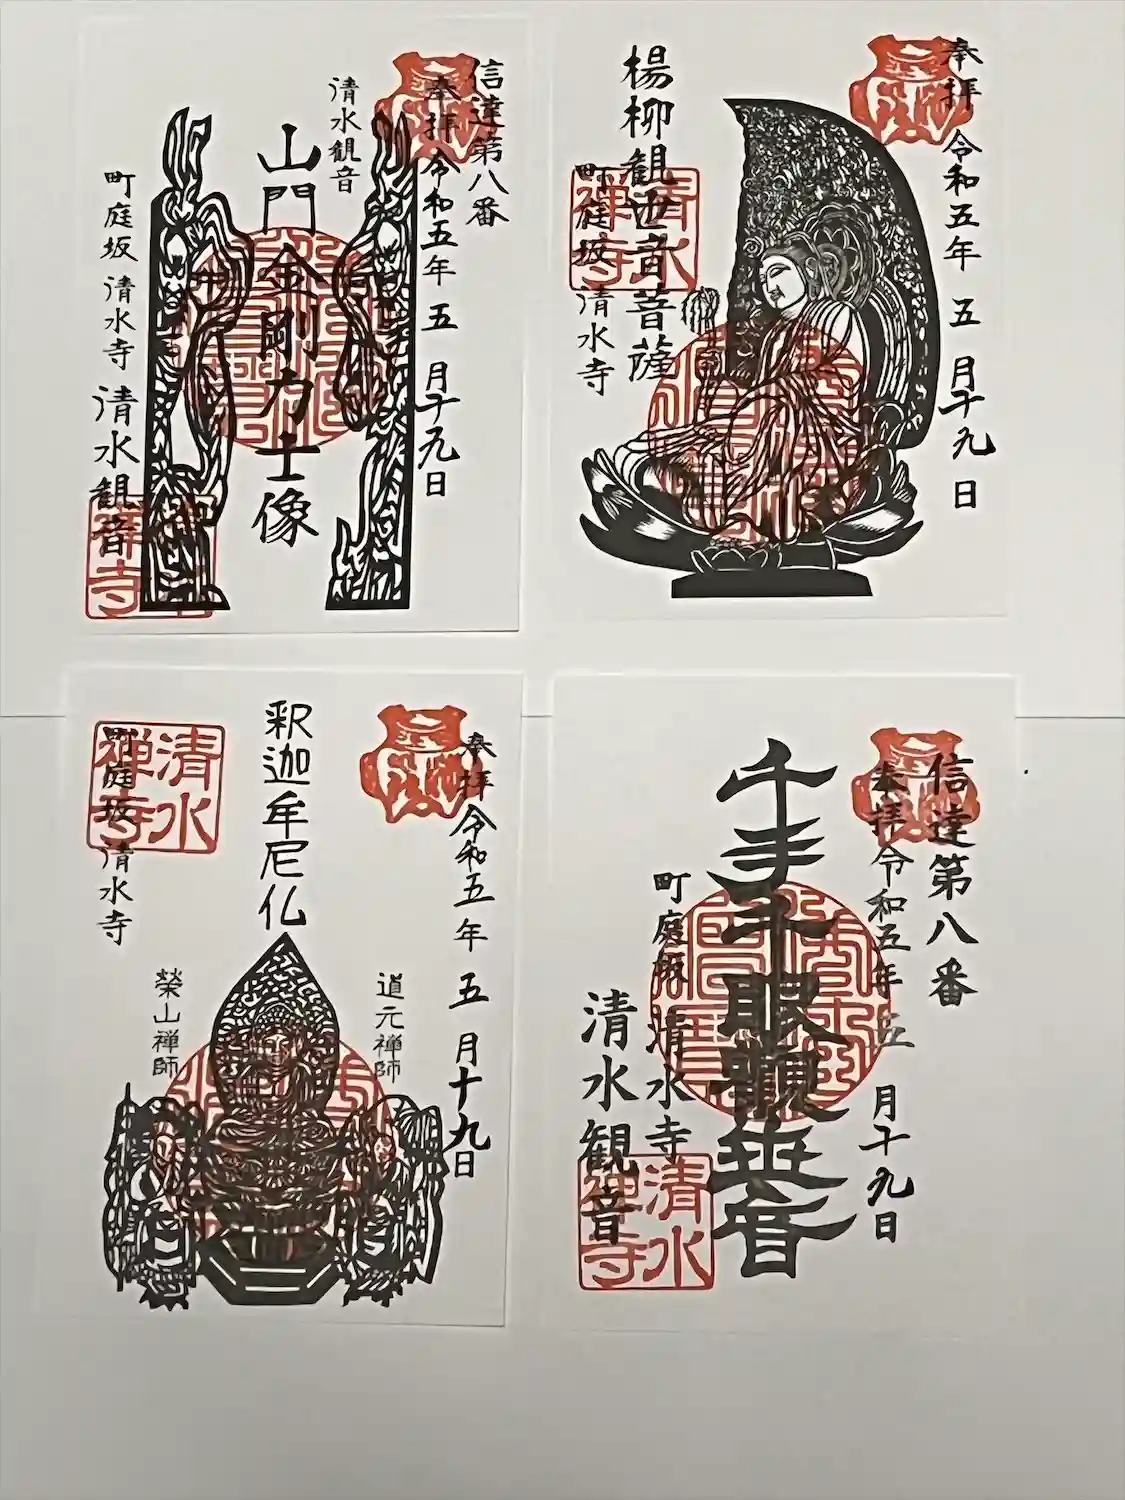 信達第八番
奉拝 令和五年 五月十九日
清水観音
山門 金剛力士像
町庭坂 清水寺 清水観音
禅寺
奉拝 令和五年 五月十九日
楊柳観世音菩薩
町庭坂 清水寺
清水
禅寺
奉拝 令和五年 五月十九日
道元禅師
釈迦牟尼仏
榮山禅師
町庭坂 清水寺
清水
禅寺
信達第八番
奉拝 令和五年 五月十九日
千手千眼観世音
町庭坂 清水寺
清水観音
清水
禅寺